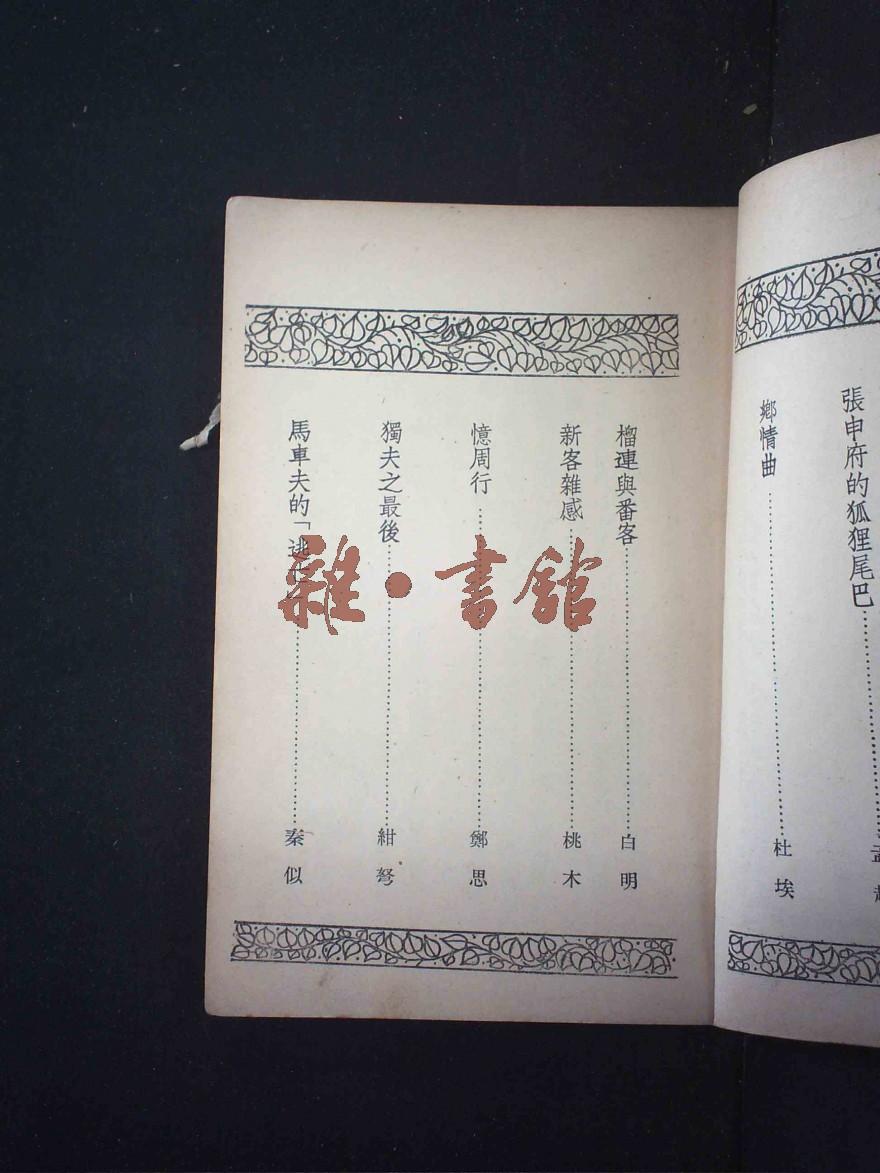 張申府的狐狸尾巴……孟
鄉情曲……杜埃
榴連與番客……白明
新客雜感……桃木
憶周行……鄭思
獨夫之最後……紺弩
馬車夫的「逃……秦似
雜·書館